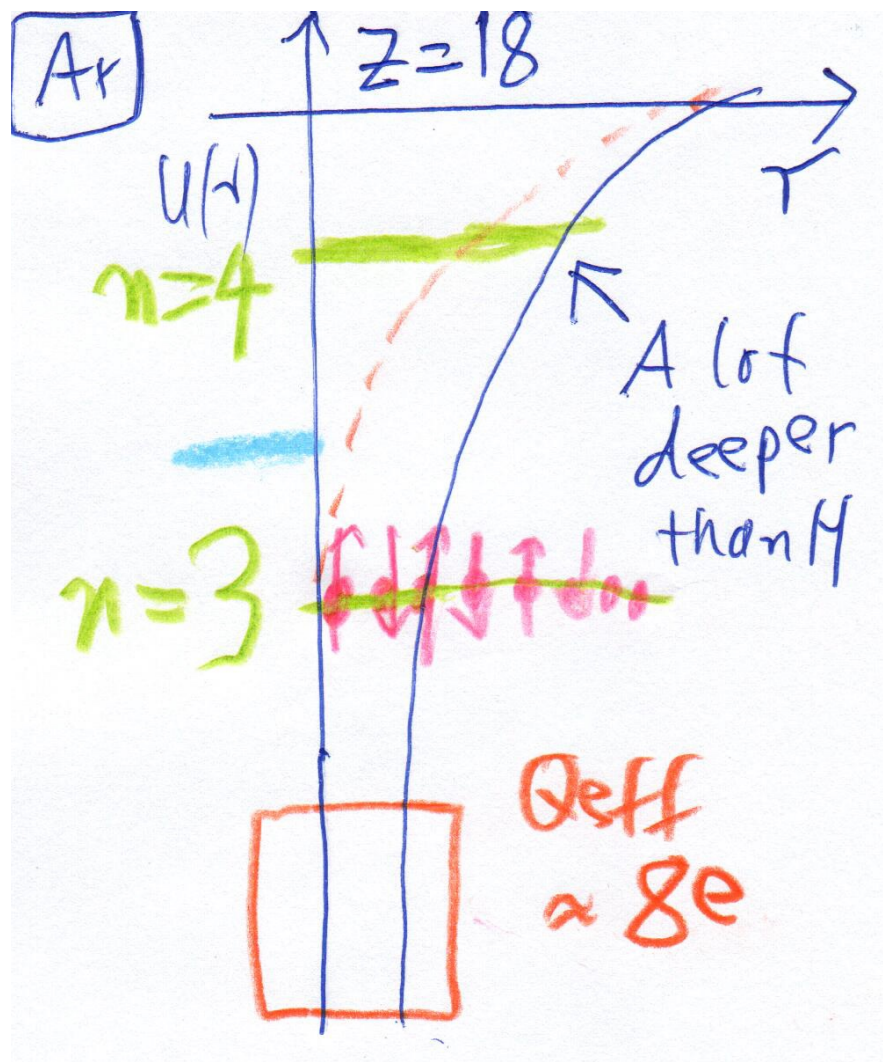 Ar
Z=18
U(r)
r
n=4
A lot
deeper
than H
n=3
Qeff
≈ 8e